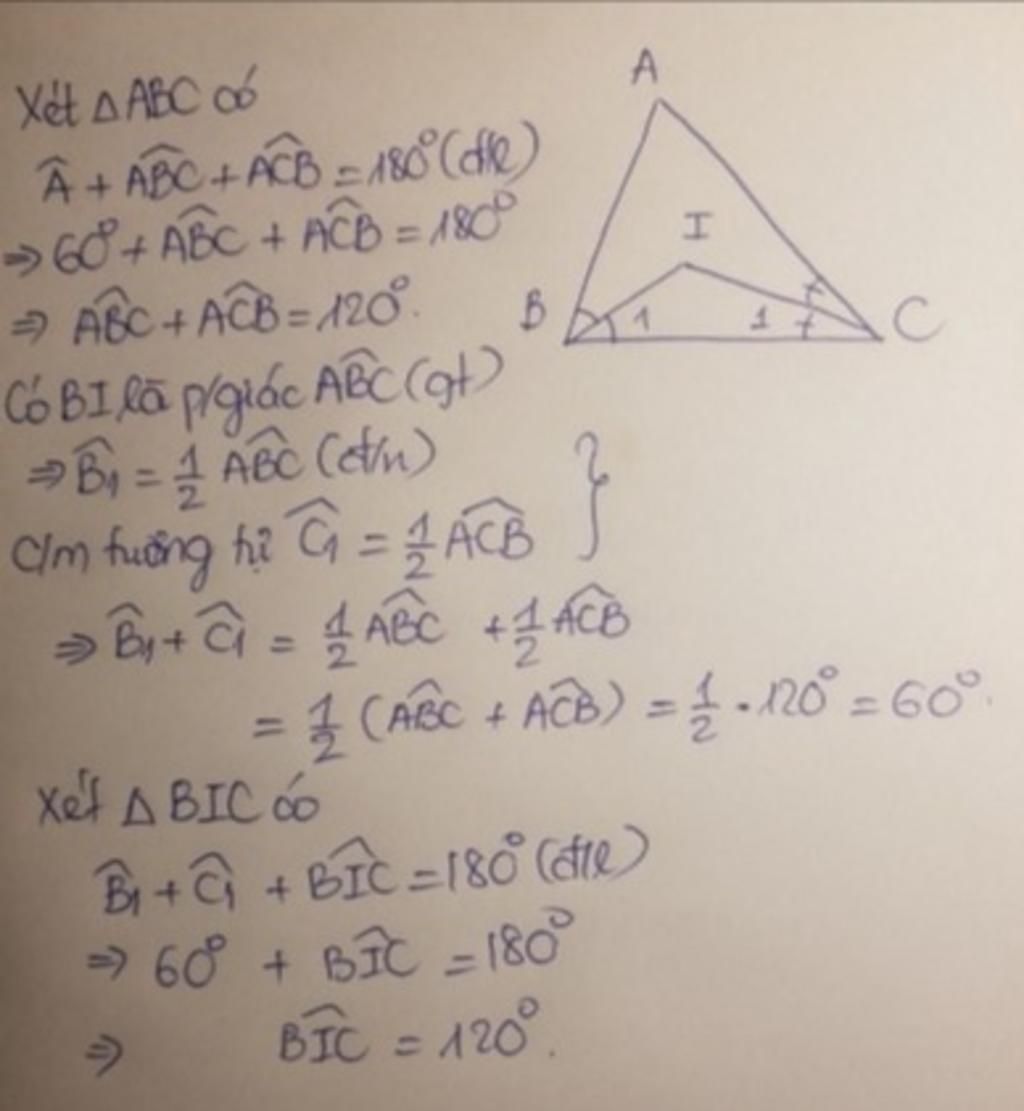 Xét △ABC có
Â + ABC^ + ACB^ = 180° (đ/l)
⇒ 60° + ABC^ + ACB^ = 180°
⇒ ABC^ + ACB^ = 120°.
Có BI là p/giác ABC^ (gt)
⇒ B₁^ = 1/2 ABC^ (t/c)
C/m tương tự C₁^ = 1/2 ACB^ }
⇒ B₁^ + C₁^ = 1/2 ABC^ + 1/2 ACB^
= 1/2 (ABC^ + ACB^) = 1/2 . 120° = 60°.
Xét △BIC có
B₁^ + C₁^ + BIC^ = 180° (đ/l)
⇒ 60° + BIC^ = 180°
⇒ BIC^ = 120°.
A
I
B 1 1 C